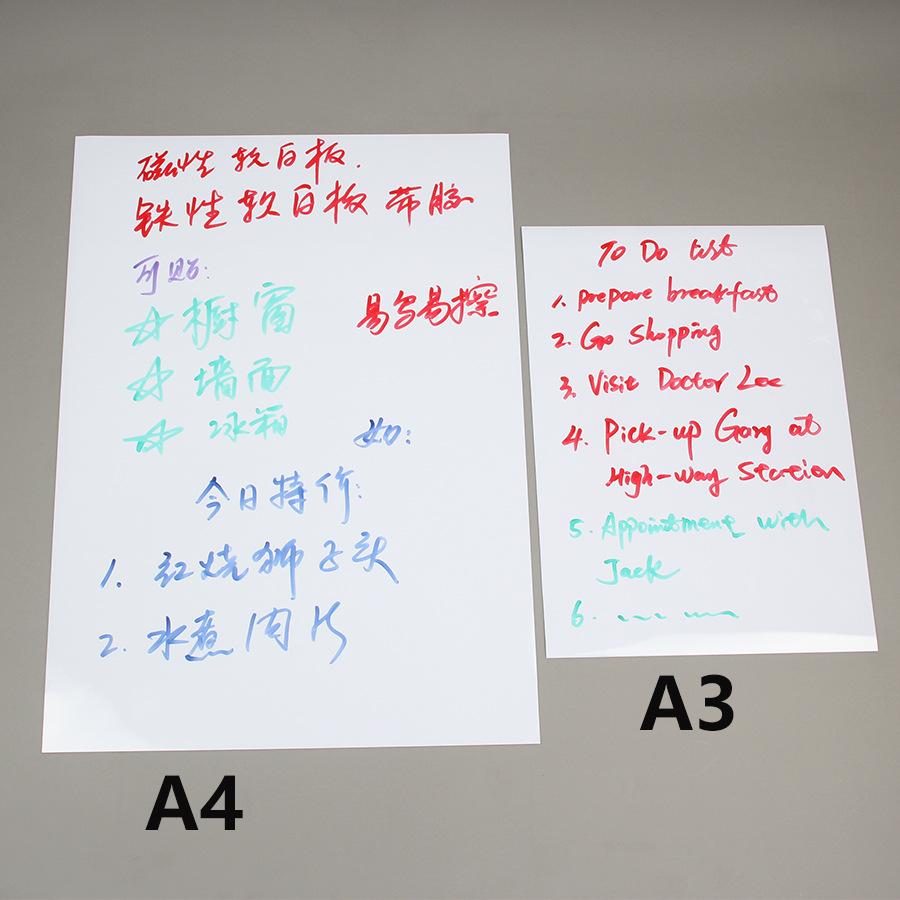 磁性软白板.
铁性软白板 带胶
可贴:
☆橱窗
易写易擦
☆墙面
☆冰箱
如:
今日特价:
1. 红烧狮子头
2. 水煮肉片
A4
To Do List
1. prepare breakfast
2. Go shopping
3. Visit Doctor Lee
4. Pick-up Gary at
High-way Station
5. Appointment with
Jack
6. ~~~ ~~~
A3